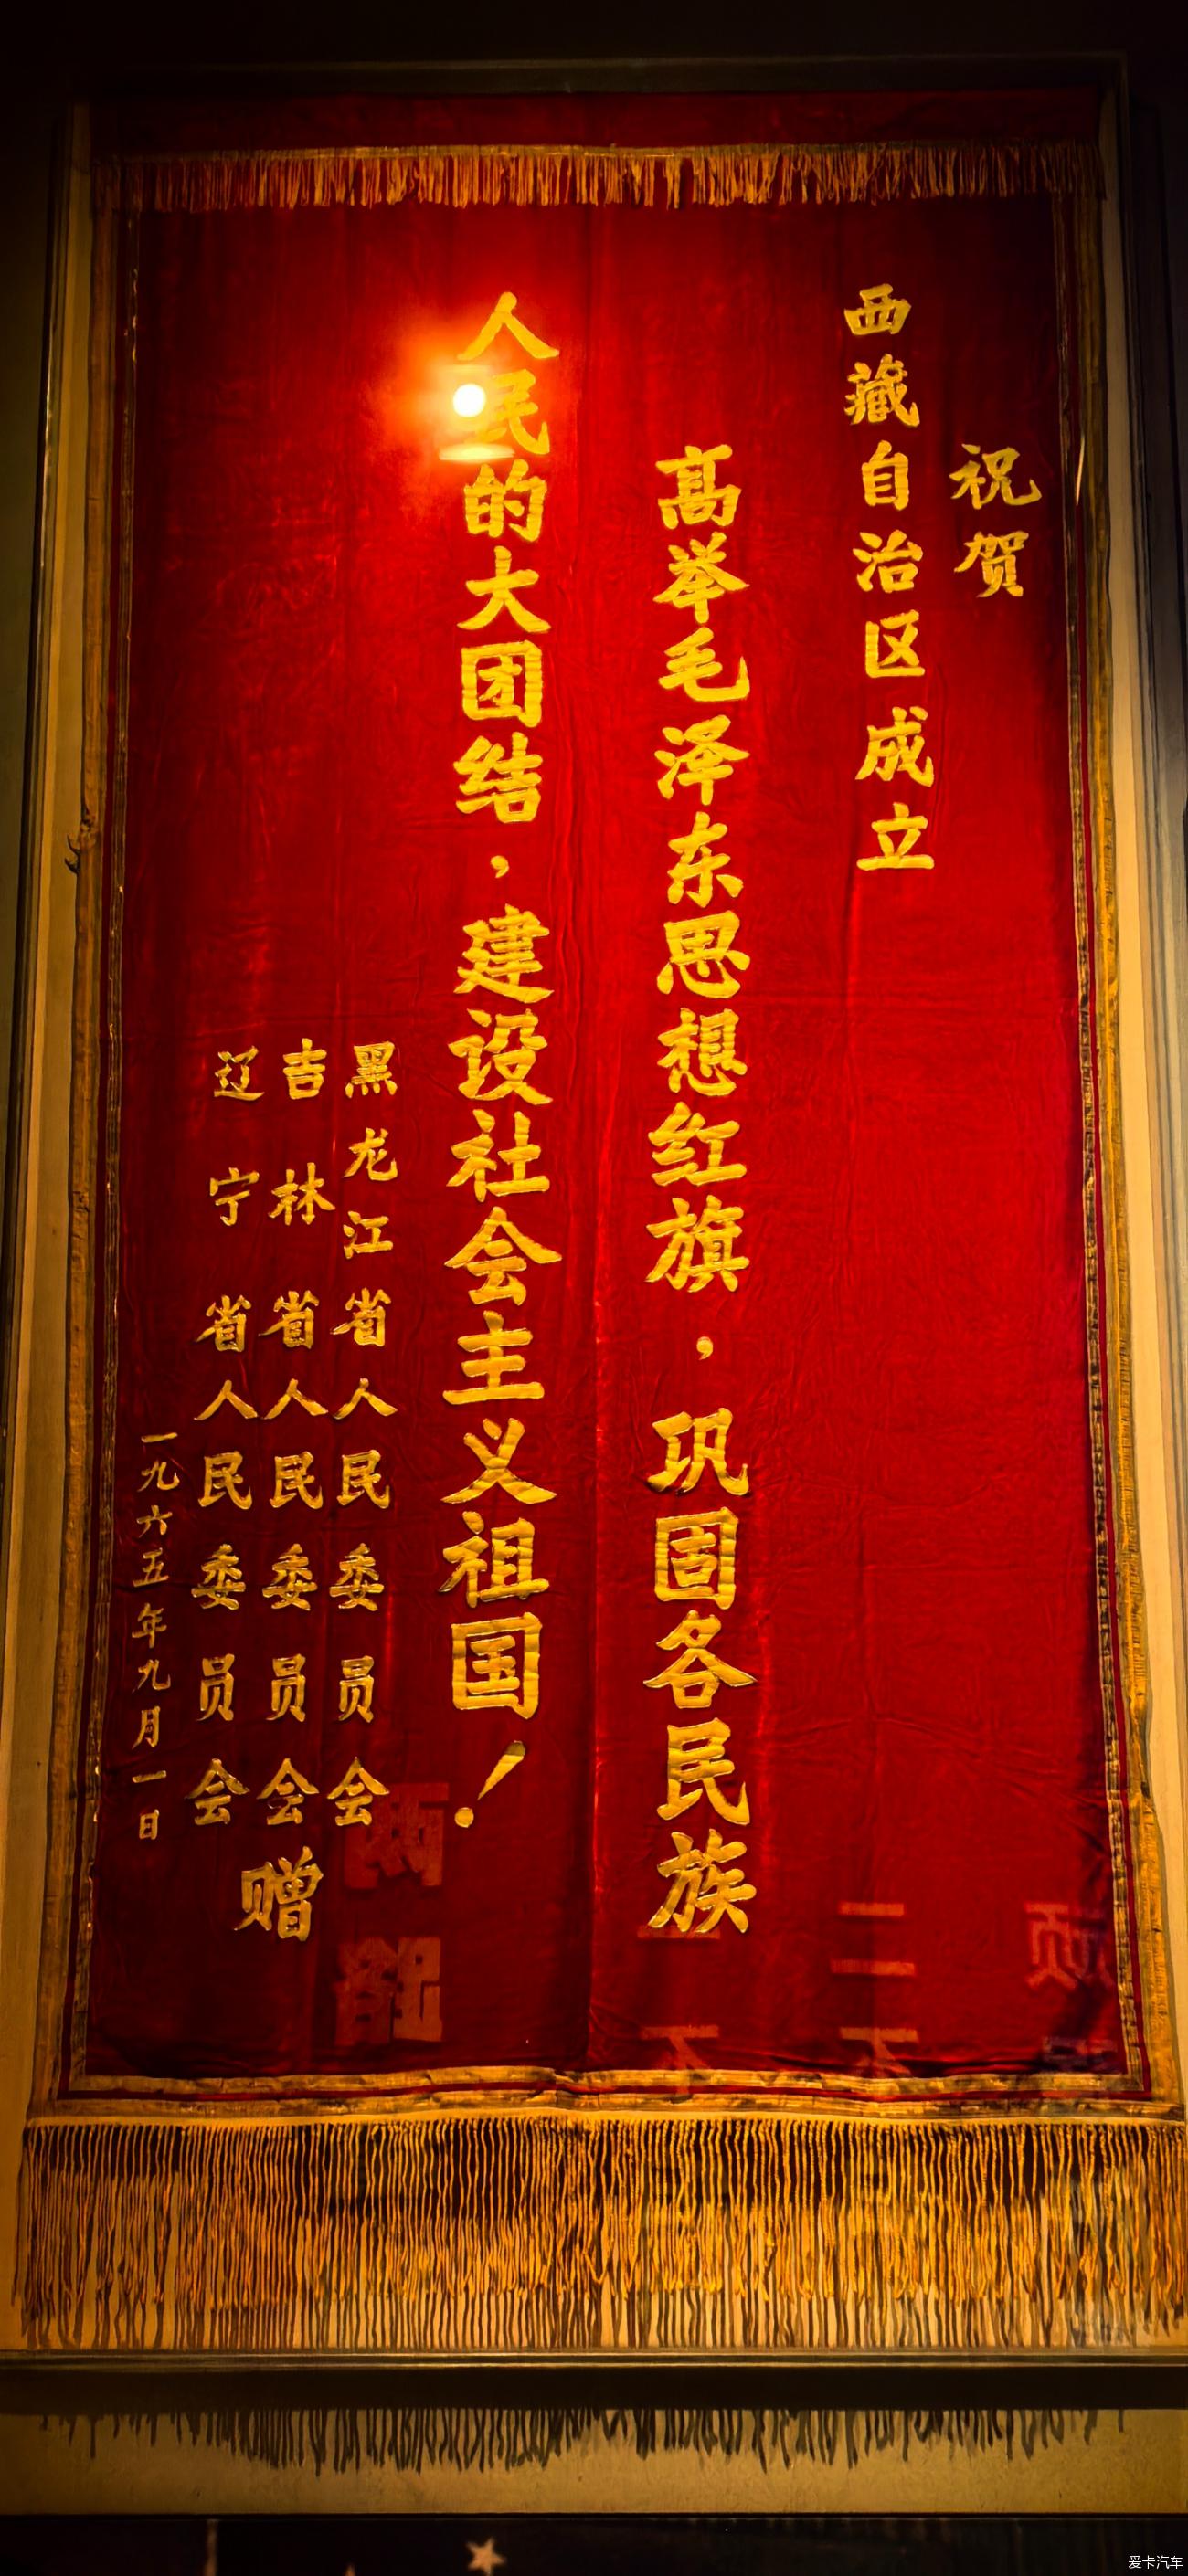 祝贺
西藏自治区成立
高举毛泽东思想红旗，巩固各民族
人民的大团结，建设社会主义祖国！
黑龙江省人民委员会
吉林省人民委员会
辽宁省人民委员会
赠
一九六五年九月一日
爱卡汽车